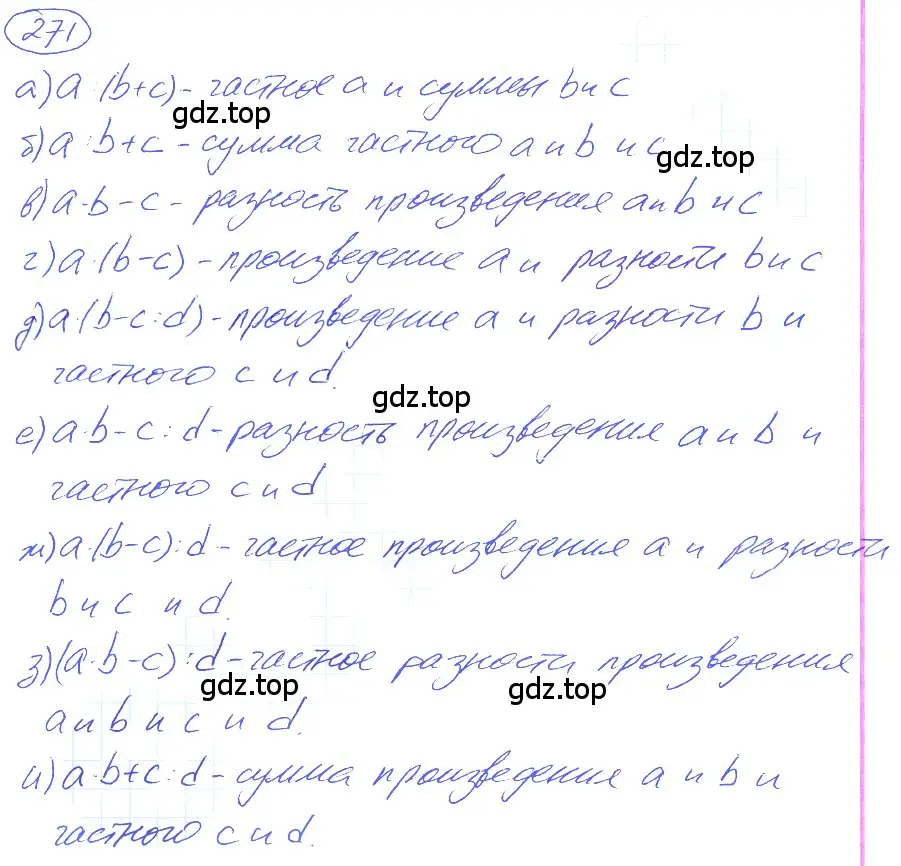 271
а) a : (b+c) - частное a и суммы b и c
gdz.top
б) a : b+c - сумма частного a и b и c
gdz.top
в) a·b-c - разность произведения a и b и c
г) a·(b-c) - произведение a и разности b и c
д) a·(b-c:d) - произведение a и разности b и
частного c и d.
gdz.top
е) a·b-c:d - разность произведения a и b и
частного c и d
ж) a·(b-c):d - частное произведения a и разности
b и c и d.
з) (a·b-c):d - частное разности произведения
gdz.top gdz.top
a и b и c и d.
и) a·b+c:d - сумма произведения a и b и
частного c и d.